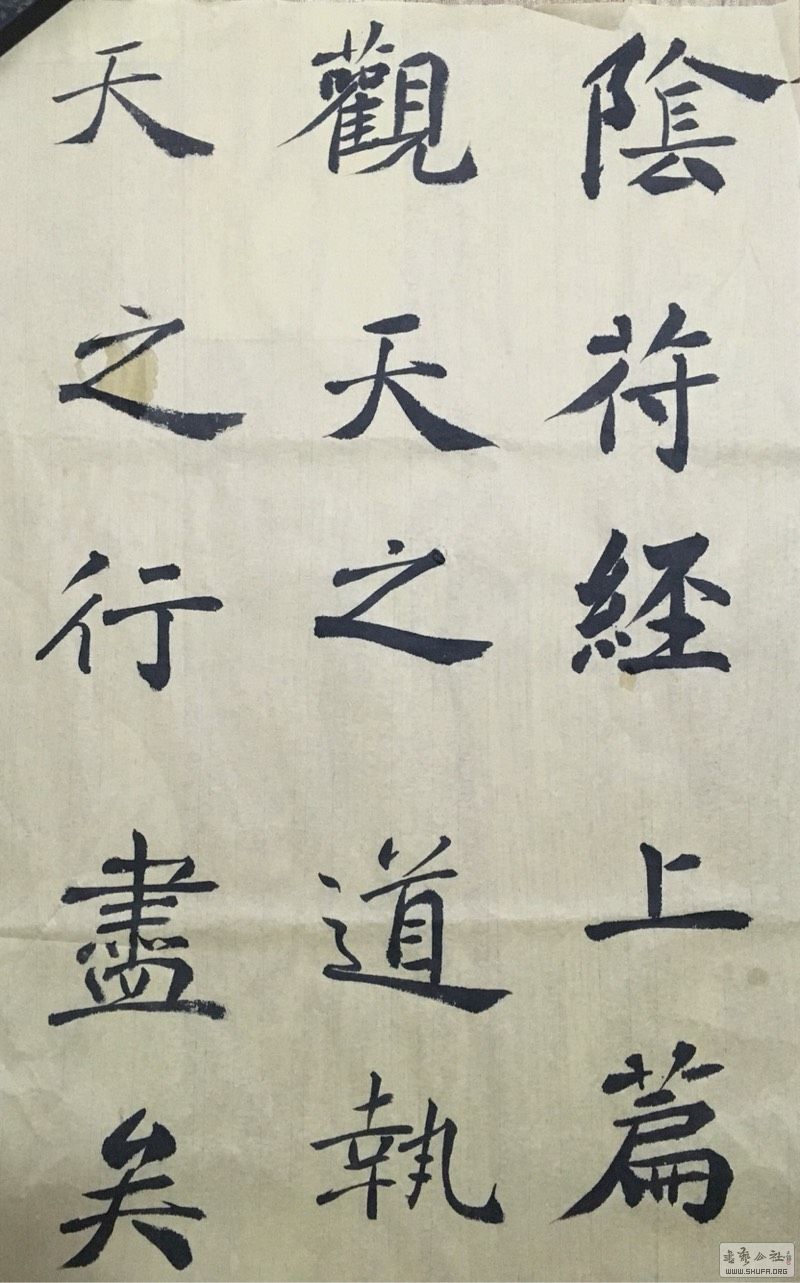 陰苻經上篇
觀天之道執
天之行盡矣
書藝公社
WWW.SHUFA.ORG